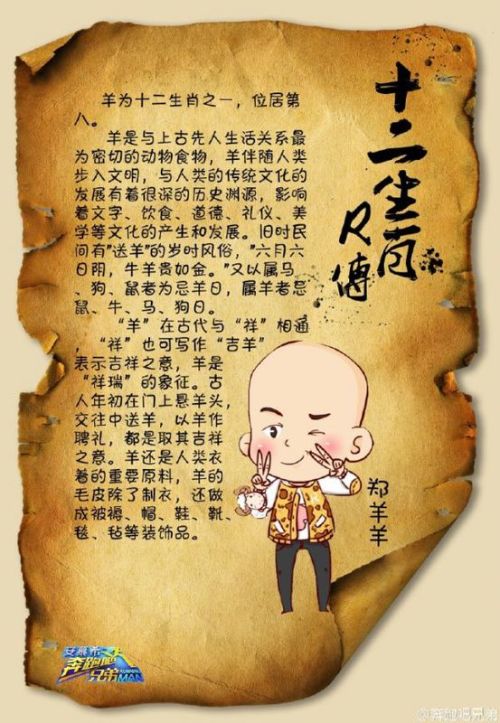 十二生肖
R傅
羊为十二生肖之一，位居第
八。
羊是与上古先人生活关系最
为密切的动物食物，羊伴随人类
步入文明，与人类的传统文化的
发展有着很深的历史渊源，影响
着文字、饮食、道德、礼仪、美
学等文化的产生和发展。旧时民
间有"送羊"的岁时风俗，"六月六
日阴，牛羊贵如金。"又以属马
、狗、鼠者为忌羊日，属羊者忌
鼠、牛、马、狗日。
“羊”在古代与“祥”相通
，“祥”也可写作“吉羊”
表示吉祥之意，羊是
“祥瑞”的象征。古
人年初在门上悬羊头，
交往中送羊，以羊作
聘礼，都是取其吉祥
之意。羊还是人类衣
着的重要原料，羊的
毛皮除了制衣，还做
成被褥、帽、鞋、靴、
毯、毡等装饰品。
郑羊羊
安慕希
奔跑吧
兄弟
RUNNING MAN
@奔跑吧兄弟